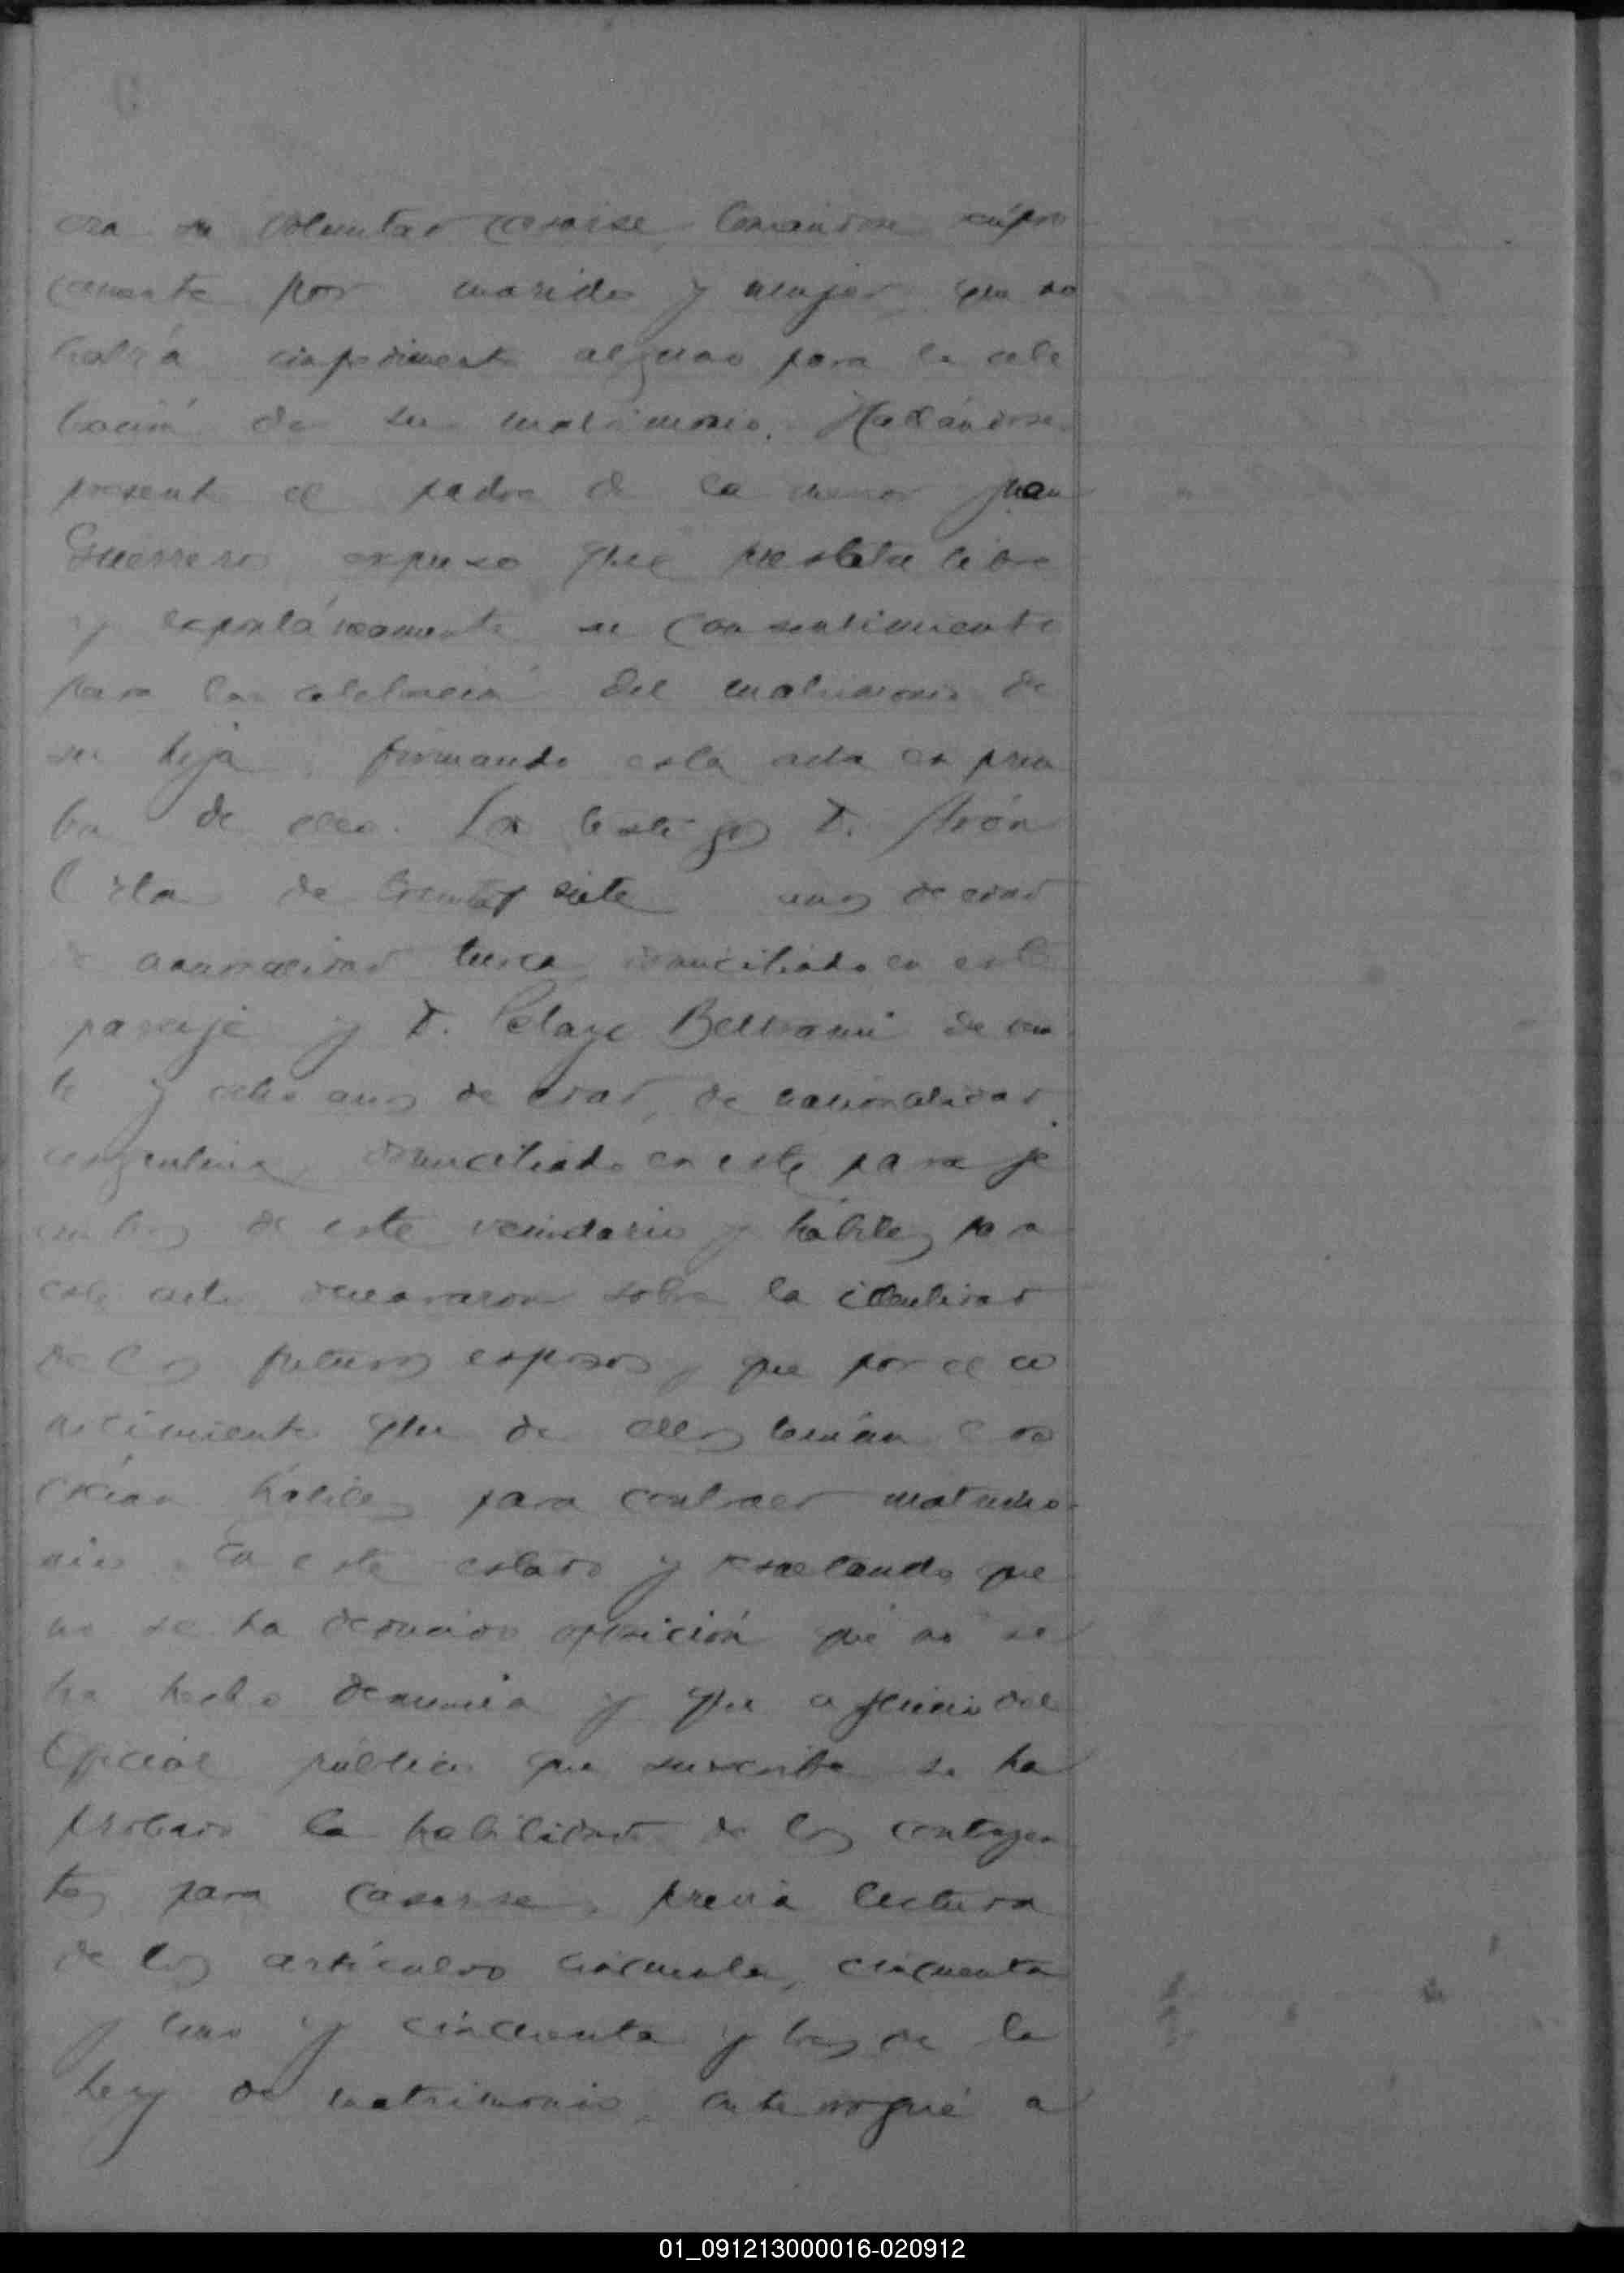 era su voluntad casarse, tomándose recípro
camente por marido y mujer, que no
había impedimento alguno para la cele
bración de su matrimonio. Hallándose
presente el padre de la menor Juan
Guerrero expuso que prestaba libre
y expontáneamente su consentimiento
para la celebración del matrimonio de
su hija, firmando esta acta en prue
ba de ello. Los testigos D. Arón
de treinta y siete años de edad
de nacionalidad turca, domiciliado en este
paraje y D. Pelayo Beltrami de vein
te y ocho años de edad, de nacionalidad
argentina, domiciliado en este paraje
ambos de este vecindario y hábiles para
este acto declararon sobre la identidad
de los futuros esposos y que por el co
nocimiento que de ellos tenían los
creían hábiles para contraer matrimo-
nio. En este estado y resultando que
no se ha deducido oposición que no se
ha hecho denuncia y que a juicio del
Oficial público que suscribe se ha
probado la habilidad de los contrayen
tes para casarse, previa lectura
de los artículos cincuenta, cincuenta
y uno y cincuenta y tres de la
ley de matrimonio, interrogué a
01_091213000016-020912